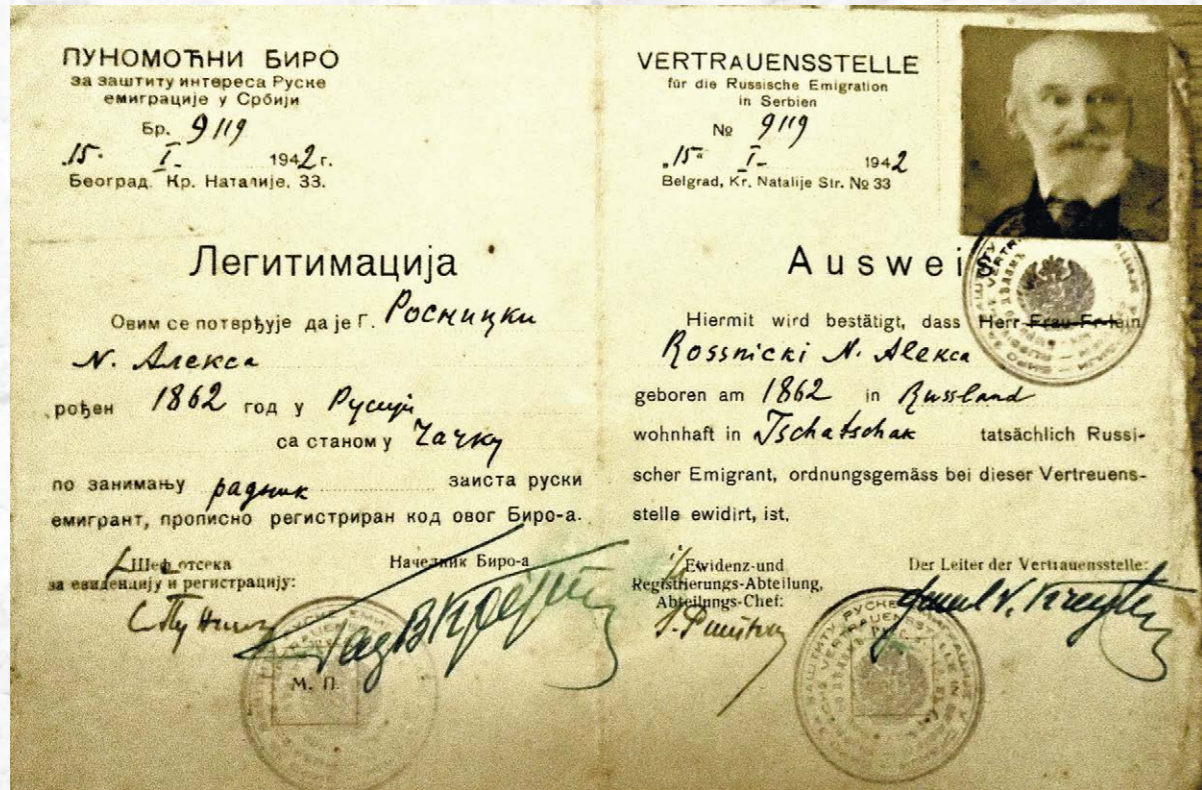 ПУНОМОЋНИ БИРО
за заштиту интереса Руске
емиграције у Србији
Бр. 9119
„15. I. 1942 г.
Београд. Кр. Наталије. 33.
Легитимација
Овим се потврђује да је Г. Росницки
N. Алекса
рођен 1862 год у Русији
са станом у Чачку
по занимању радник заиста руски
емигрант, прописно регистриран код овог Биро-а.
Шеф отсека
за евиденцију и регистрацију:
Начелник Биро-а
М. П.
VERTRAUENSSTELLE
für die Russische Emigration
in Serbien
No 9119
„15“ I. 1942
Belgrad, Kr. Natalije Str. No 33
Ausweis
Hiermit wird bestätigt, dass Herr Frau Fr-lein
Rossnicki N. Alekca
geboren am 1862 in Russland
wohnhaft in Tschatschak tatsächlich Russi-
scher Emigrant, ordnungsgemäss bei dieser Vertreuens-
stelle ewidirt, ist.
Ewidenz-und
Registrierungs-Abteilung,
Abteilungs-Chef:
Der Leiter der Vertrauensstelle: